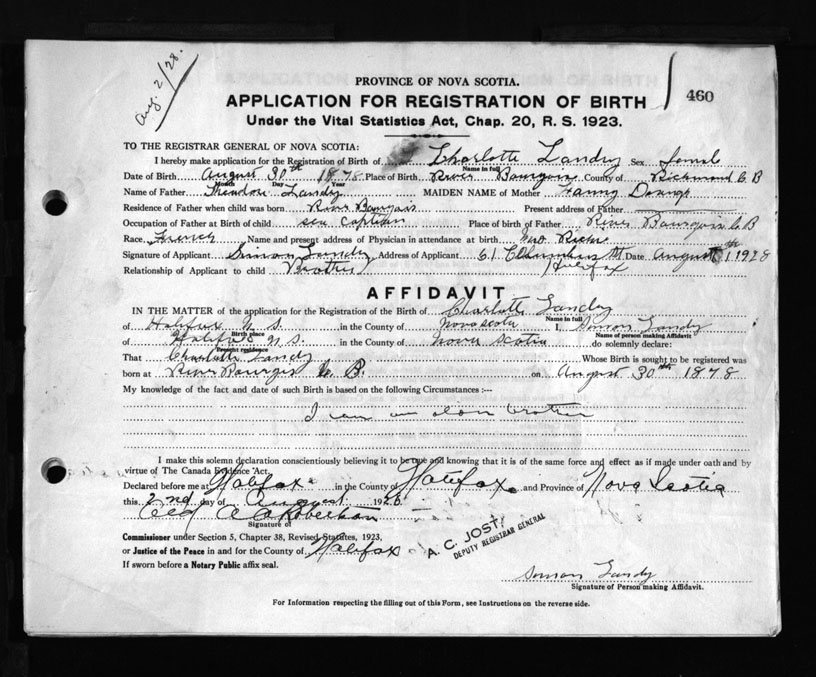 Aug. 2/28.
PROVINCE OF NOVA SCOTIA.
APPLICATION FOR REGISTRATION OF BIRTH
460
Under the Vital Statistics Act, Chap. 20, R. S. 1923.
TO THE REGISTRAR GENERAL OF NOVA SCOTIA:
I hereby make application for the Registration of Birth of Charlotte Landry Sex female
Name in full
Date of Birth August 30th 1878 Place of Birth River Bourgeois County of Richmond C B
Month Day Year
Name of Father Landry MAIDEN NAME of Mother Fanny
Residence of Father when child was born River Bourgois Present address of Father
Occupation of Father at Birth of child sea Captian Place of birth of Father River Bourgois C B
Race French Name and present address of Physician in attendance at birth
Signature of Applicant Simon Landry Address of Applicant 61 St Date August 1 1928
Halifax
Relationship of Applicant to child Brother
AFFIDAVIT
IN THE MATTER of the application for the Registration of the Birth of Charlotte Landry
Name in full
of Halifax N S. in the County of Nova scotia I, Simon Landry
Birth place
Name of person making Affidavit
of Halifax N S. in the County of Nova Scotia do solemnly declare:
Present residence
That Charlotte Landry Whose Birth is sought to be registered was
born at River Bourgis C. B. on August 30th 1878
My knowledge of the fact and date of such Birth is based on the following Circumstances :—
I am an brother
I make this solemn declaration conscientiously believing it to be true and knowing that it is of the same force and effect as if made under oath and by
virtue of The Canada Evidence Act.
Declared before me at Halifax in the County of Halifax and Province of Nova Scotia
this 2nd day of August 1928
Robertson
Signature of
Commissioner under Section 5, Chapter 38, Revised Statutes, 1923,
or Justice of the Peace in and for the County of Halifax
A. C. JOST,
DEPUTY REGISTRAR GENERAL
If sworn before a Notary Public affix seal.
Simon Landry
Signature of Person making Affidavit.
For Information respecting the filling out of this Form, see Instructions on the reverse side.